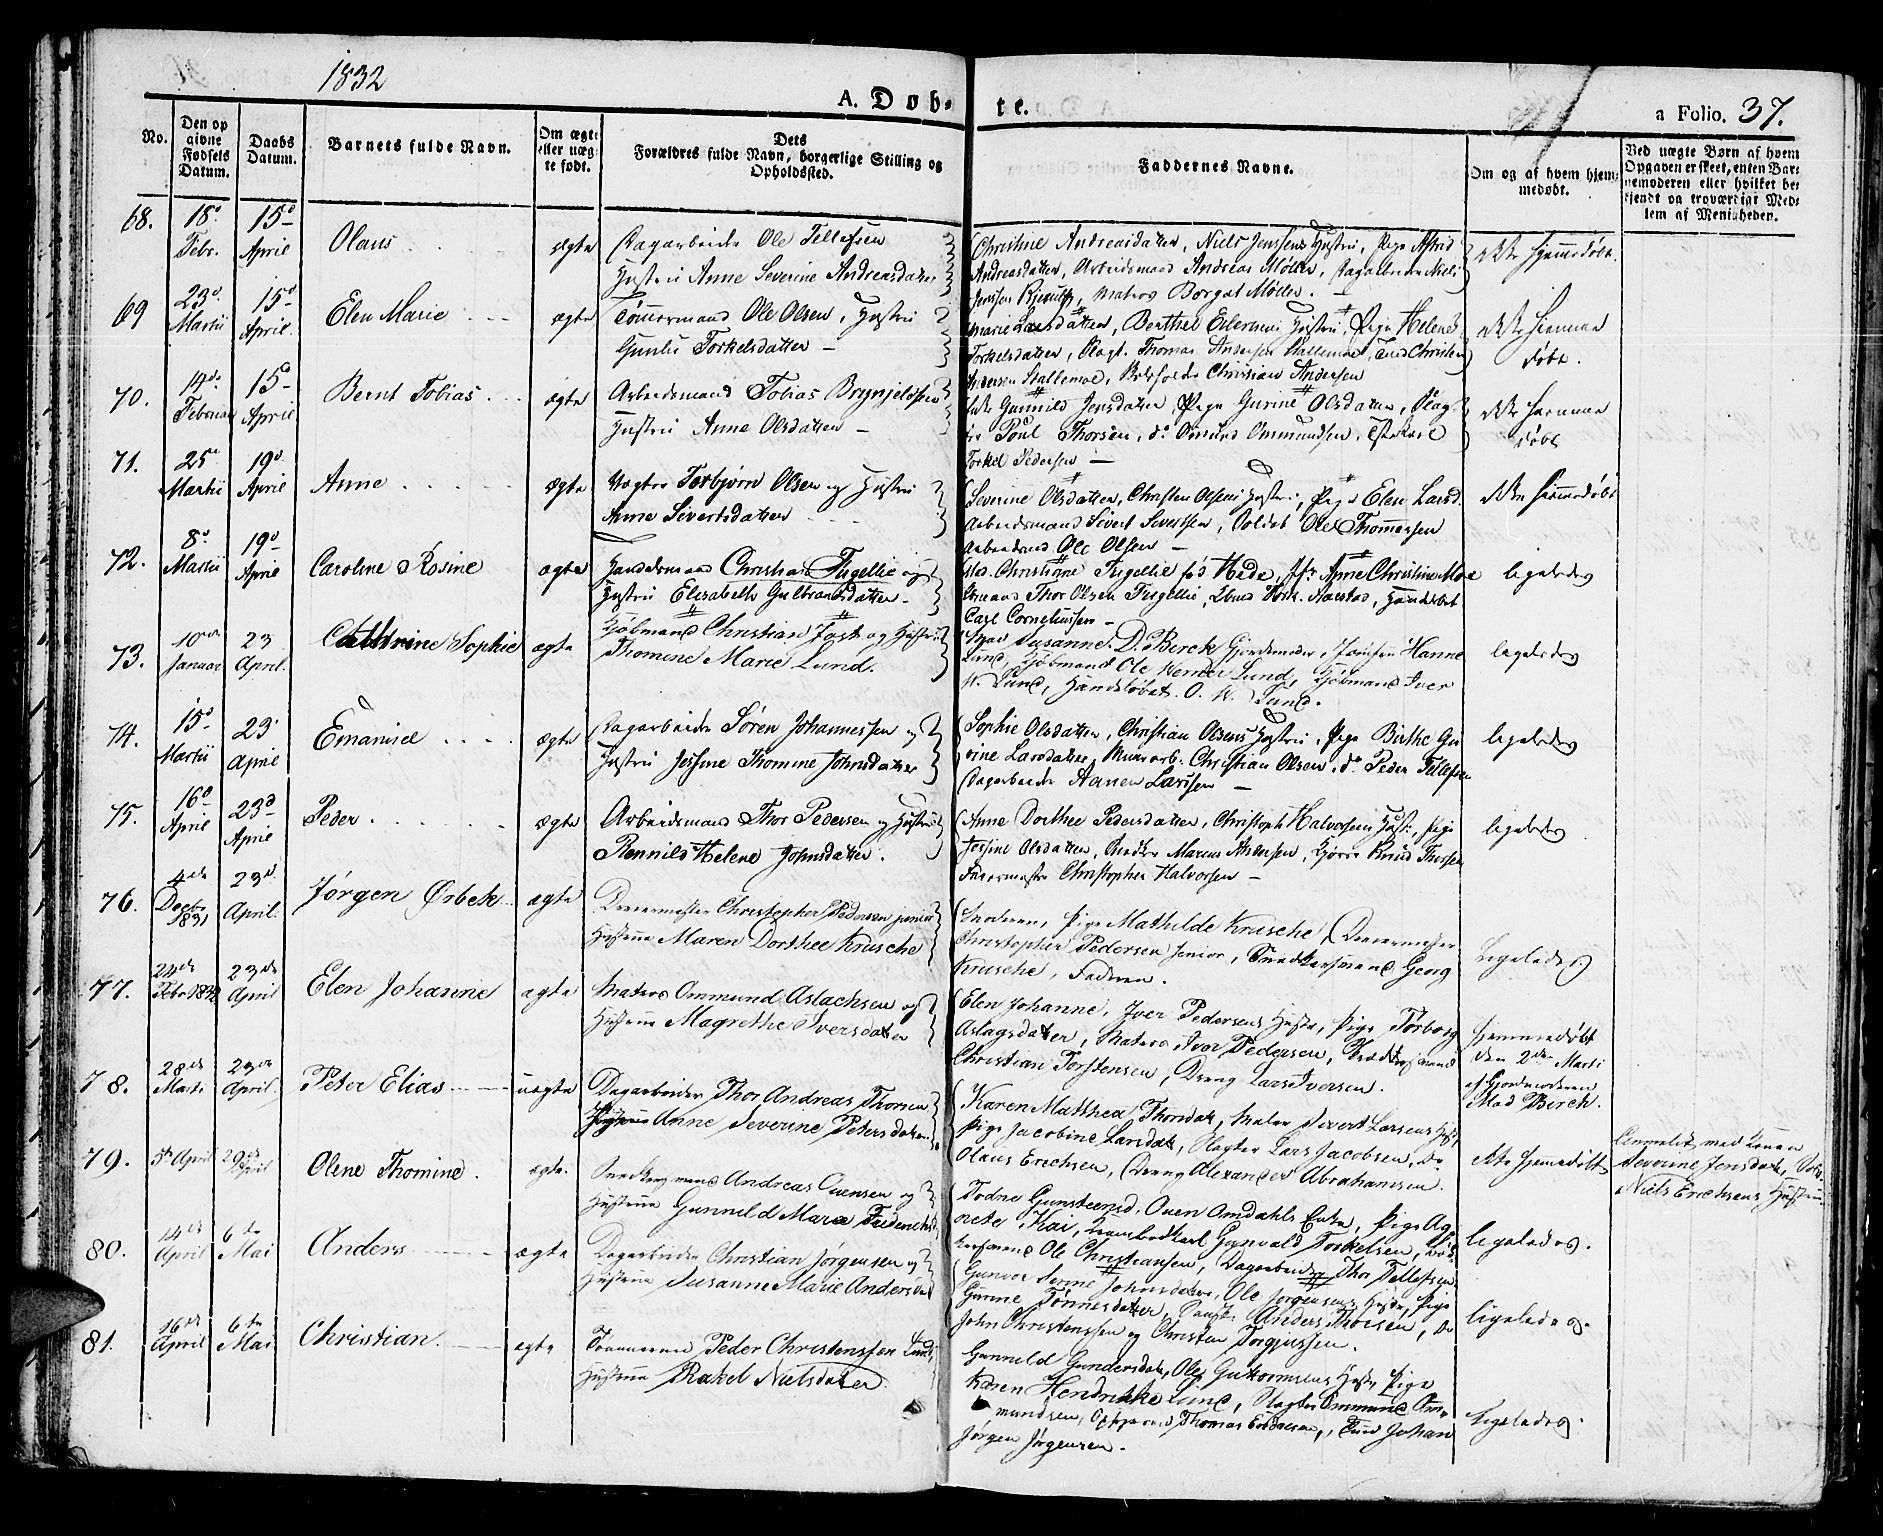 1832
A. Døb-
te.
a Folio. 37.
No.
Den op
givne
Fødsels
Datum.
Daabs
Datum.
Barnets fulde Navn.
Om ægte
eller uæg
te født.
Dets
Forældres fulde Navn, borgerlige Stilling og
Opholdssted.
Faddernes Navne.
Om og af hvem hjem-
medøbt.
Ved uægte Børn af hvem
Opgaven er skeet, enten Bar-
nemoderen eller hvilket be-
kjendt og troværdigt Med-
lem af Menigheden.
68. 18d Febr. 15d April Olaus ægte
Dagarbeider Ole Tellefsen
Hustru Anne Severine Andreasdatter
Christine Andreasdatter, Niels Jensens Hustru, Pige Astrid
Andreasdatter, Arbeidsmand Andreas Møller, Dagarbeider Niels
Jensen, Matros Borgat Møller.
ikke hjemmedøbt.
69 23d Martii 15d April. Elen Marie ægte
Tømmermand Ole Olsen, Hustru
Gunild Torkelsdatter
Marie Larsdatter, Berthel Eilersens Hustru, Pige Helene
Torkelsdatter, Thomas Andersen Stallemoe, Christen
Andersen Stallemoe, Christian Andersen
ikke hjemme
døbt.
70. 14de Februar 15d April Bernt Tobias ægte
Arbeidsmand Tobias Brynjelssen
Hustru Anne Olsdatter
Gunnild Jensdatter, Pige Gurine Olsdatter,
Poul Thorsen, do Omund Ommundsen,
Torkel Pedersen
ikke hjemme
døbt
71. 25d Martii 19d April Anne ægte
Vægter Torbjørn Olsen og Hustru
Anne Sivertsdatter
Severine Olsdatter, Christen Olsens Hustru, Pige Elen Larsd.
Arbeidsmand Sivert Sivertsen, Soldat Ole Thommesen
Arbeidsmd Ole Olsen
ikke hjemmedøbt
72. 8d Martii 19d April Caroline Rosine ægte
Handelsmand Christian Tugellie og
Hustru Elisabeth Gulbrandsdatter
Mad. Christiane Tugellie fød Hede, Jfr Anne Christine Moe
Thor Olsen Tugellie,
Carl Corneliussen
ligeledes
73. 10de Januar 23 April. Cathrine Sophie ægte
Kjøbmand Christian Just og Hustru
Thomine Marie Lund.
Susanne D. Berck Gjordemoder, Jomfru Hanne
Lund, Kjøbmand Ole Werner Lund, Kjøbmand Iver
W. Lund, O. W. Lund.
ligeledes
74. 15d Martii 23 April Emanuel ægte
Dagarbeider Søren Johannessen og
Hustru Jossine Thomine Johnsdatter
Sophie Olsdatter, Christian Olsens Hustru, Pige Birthe Gu
rine Larsdatter, Christian Olsen, do Peder Tellefsen
Dagarbeider Hanen Larssen
ligeledes
75. 16d April 23d April Peder ægte
Arbeidsmand Thor Pedersen og Hustru
Rennild Helene Johnsdatter.
Anne Dorthee Pedersdatter, Christoph Halvorsens Hust., Pige
Josine Olsdatter, Snedker Marcus Anensen, Knud Thorsen
Christopher Halvorsen
ligeledes
76. 4de Decbr 1831 23d April. Jørgen Ørbek ægte
Dreiermester Christopher Pedersen junior
Hustrue Maren Dorthee Krusche
Moderen, Pige Mathilde Krusche, Dreiermester
Christopher Pedersen senior, Snedkersvend Georg
Krusche, Faderen.
Ligeledes
77. 24de Febr 1832 23de April Elen Johanne ægte
Matros Ommund Aslachsen og
Hustrue Magrethe Iversdatter
Elen Johanne, Iver Pedersens Hustr, Pige Torborg
Aslagsdatter, Matros Iver Pedersen,
Christian Torstensen, Dreng Lars Iversen.
Hjemmedøbt
den 2den Marti
af Gjordemoderen
Mad Birch.
78. 28de Marts 23de April. Peter Elias uægte
Dagarbeider Thor Andreas Thorsen
Anne Severine Petersdatter
Karen Mathea Thorsdatt, Maler Sivert Larsens Hust,
Pige Jacobine Larsdatt, Slagter Lars Jacobsen, Do
Olaus Erechsen, Dreng Alexander Abrahamsen.
ikke hjemmedøbt
Anmeldt med Konen
Severine Jensdatt,
Niels Erichsens Hustrue
79. 5te April 29de April Olene Thomine. ægte.
Snedkersvend Andreas Evensen og
Hustrue Gunnild Maria Frederichsd.
Todne Gunsteensd, Ouen Omdahls Enke, Pige Ag
nete Kai, Gunvald Torkelsen,
Ole Christiansen, Dagarbeider Thor Tellefsen
ligeledes.
80. 14de April 6te Mai Anders ægte
Dagarbeider Christian Jørgensen og
Hustrue Susanne Marie Andersdat
Gunvor Serine Johnsdatter, Ole Jørgensens Hustr, Pige
Gunne Tønnesdatter, Anders Thorsen, Do
John Christenssen og Christen Torgjussen.
ligeledes.
81. 16de April 6te Mai Christian. ægte
Tømmermd Peder Christenssen Lund,
Hustrue Rakel Nielsdatter.
Gunnild Gundersdatt, Ole Guttormsens Hustr, Pige
Karen Hendrikke Lund, Slagter Ommund Om-
mundsen, Thomas, Johan
Jørgen Jørgensen.
Ligeledes.